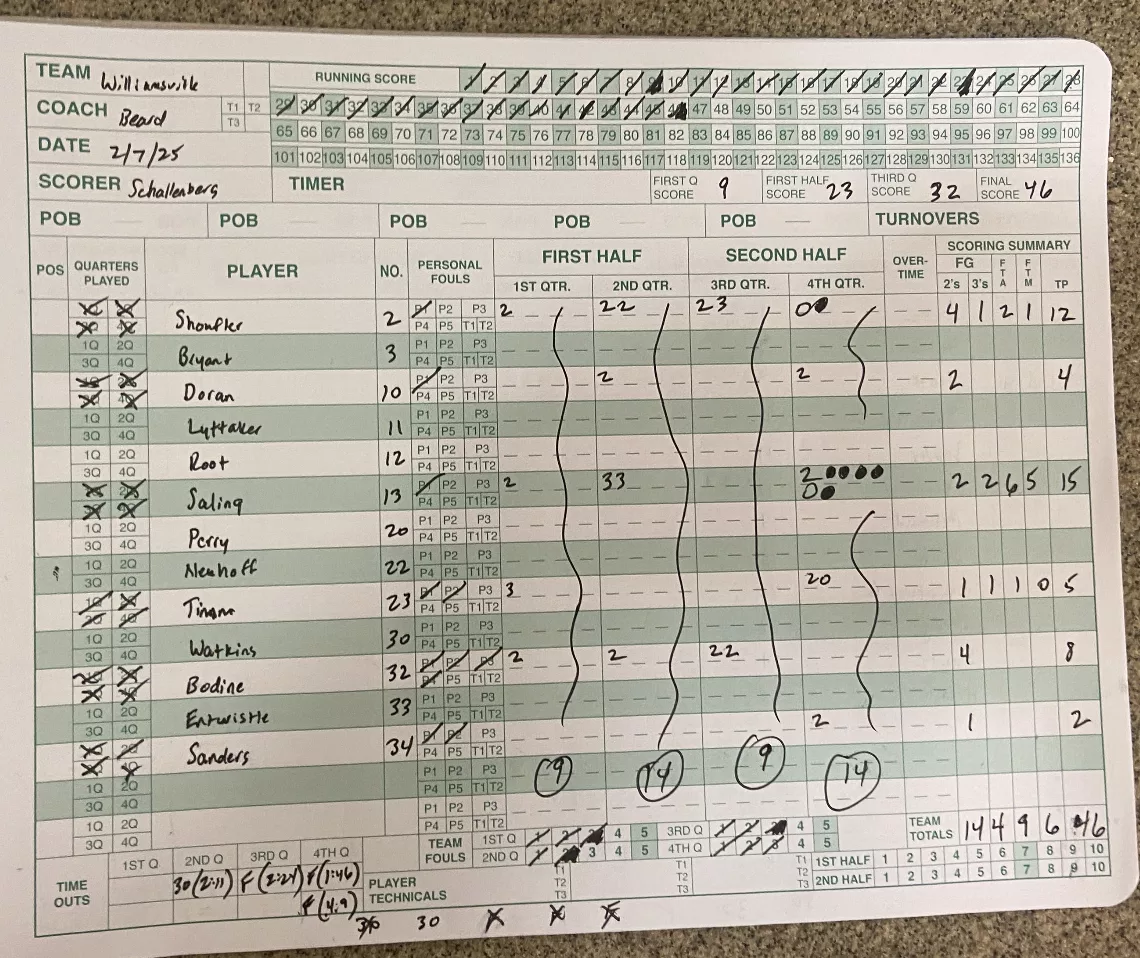 TEAM Williamsville RUNNING SCORE 1 2 3 4 5 6 7 8 9 10 11 12 13 14 15 16 17 18 19 20 21 22 23 24 25 26 27 28
COACH Beard T1 T2 T3 29 30 31 32 33 34 35 36 37 38 39 40 41 42 43 44 45 46 47 48 49 50 51 52 53 54 55 56 57 58 59 60 61 62 63 64
65 66 67 68 69 70 71 72 73 74 75 76 77 78 79 80 81 82 83 84 85 86 87 88 89 90 91 92 93 94 95 96 97 98 99 100
DATE 2/7/25 101 102 103 104 105 106 107 108 109 110 111 112 113 114 115 116 117 118 119 120 121 122 123 124 125 126 127 128 129 130 131 132 133 134 135 136
SCORER Schallenberg TIMER FIRST Q SCORE 9 FIRST HALF SCORE 23 THIRD Q SCORE 32 FINAL SCORE 46
POB POB POB POB POB TURNOVERS
POS QUARTERS PLAYED PLAYER NO. PERSONAL FOULS FIRST HALF SECOND HALF OVER-TIME SCORING SUMMARY
1ST QTR. 2ND QTR. 3RD QTR. 4TH QTR. FG 2's 3's FTA FTM TP
2 P1 P2 P3 P4 P5 T1 T2 2 22 23 4 1 2 1 12
1Q 2Q 3Q 4Q Bryant 3 P1 P2 P3 P4 P5 T1 T2
Doran 10 P1 P2 P3 P4 P5 T1 T2 2 2 2 4
1Q 2Q 3Q 4Q Lyttaker 11 P1 P2 P3 P4 P5 T1 T2
1Q 2Q 3Q 4Q Root 12 P1 P2 P3 P4 P5 T1 T2
Saling 13 P1 P2 P3 P4 P5 T1 T2 2 33 2 2 2 6 5 15
1Q 2Q 3Q 4Q Perry 20 P1 P2 P3 P4 P5 T1 T2
1Q 2Q 3Q 4Q Neuhoff 22 P1 P2 P3 P4 P5 T1 T2
23 P1 P2 P3 P4 P5 T1 T2 3 20 1 1 1 0 5
1Q 2Q 3Q 4Q Watkins 30 P1 P2 P3 P4 P5 T1 T2
Bodine 32 P1 P2 P3 P4 P5 T1 T2 2 2 22 4 8
1Q 2Q 3Q 4Q Entwistle 33 P1 P2 P3 P4 P5 T1 T2
Sanders 34 P1 P2 P3 P4 P5 T1 T2 2 1 2
1Q 2Q 3Q 4Q P1 P2 P3 P4 P5 T1 T2 9 14 9 14
1Q 2Q 3Q 4Q P1 P2 P3 P4 P5 T1 T2
TEAM FOULS 1ST Q 1 2 3 4 5 3RD Q 1 2 3 4 5 TEAM TOTALS 14 4 9 6 46
2ND Q 1 2 3 4 5 4TH Q 1 2 3 4 5
TIME OUTS 1ST Q 2ND Q 3RD Q 4TH Q PLAYER TECHNICALS T1 T2 T3 T1 T2 T3 T1 T2 T3 1ST HALF 1 2 3 4 5 6 7 8 9 10
30 (2:11) F (2:24) F (1:46) 2ND HALF 1 2 3 4 5 6 7 8 9 10
F (4.9)
30